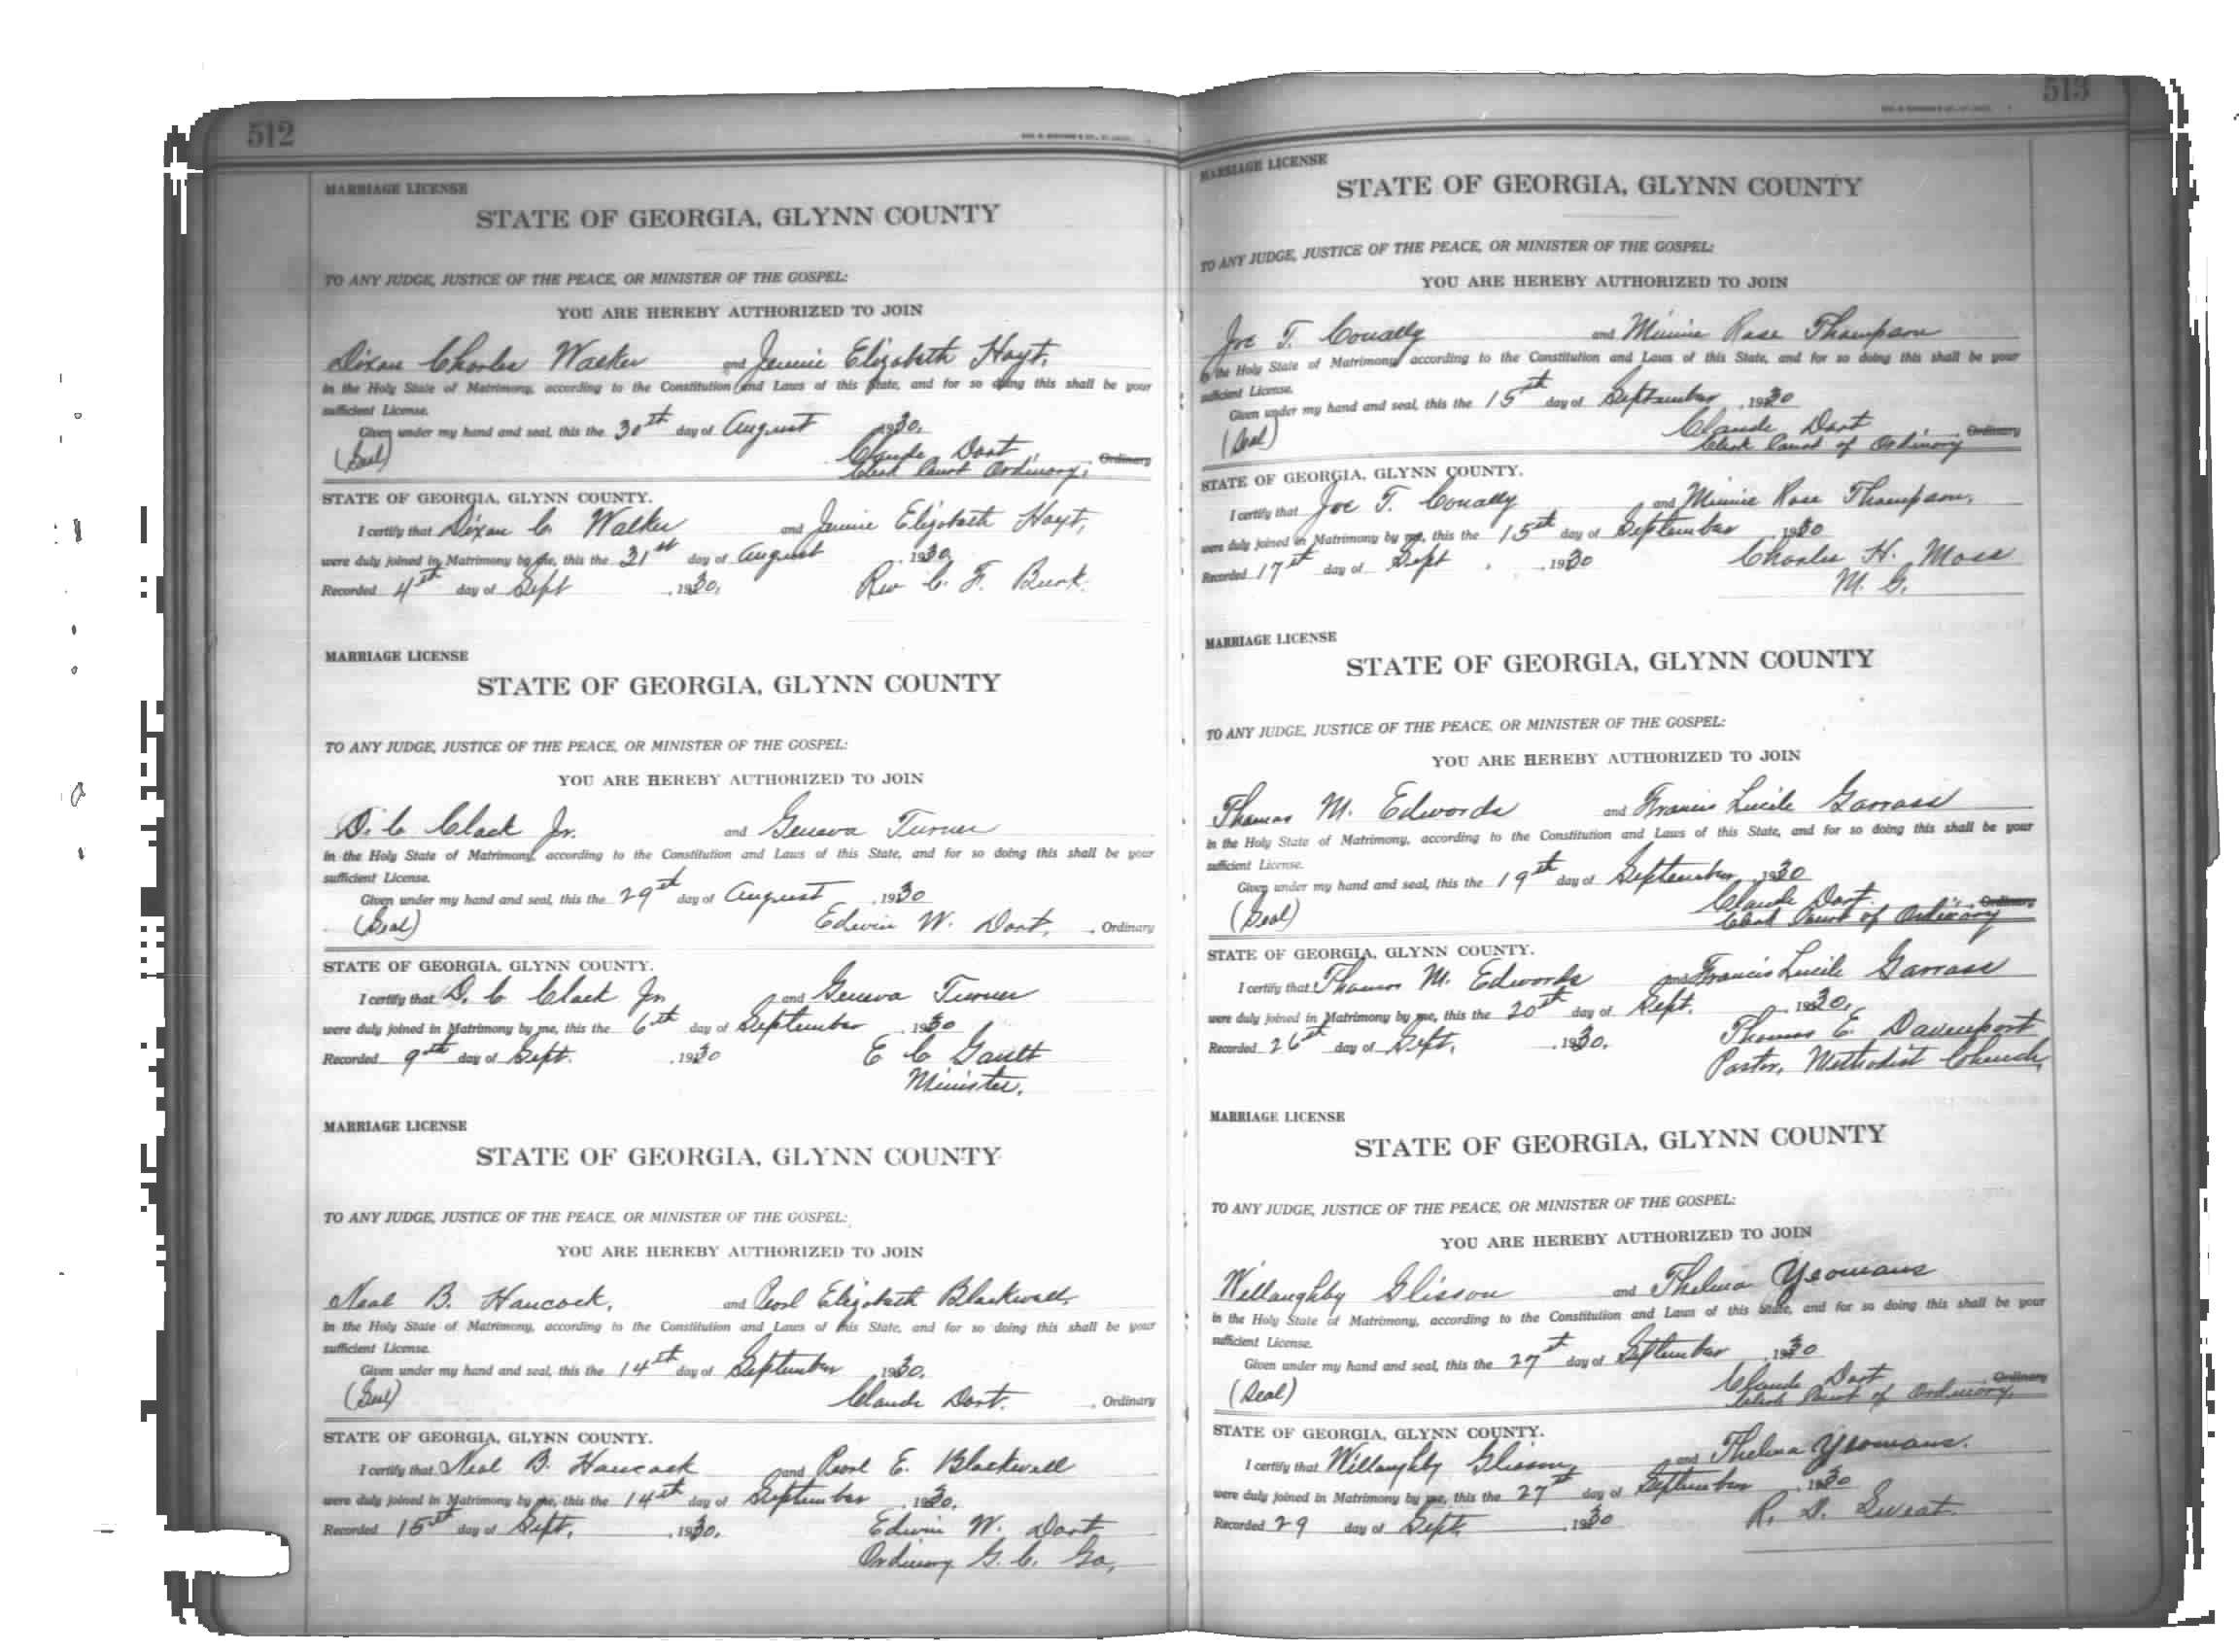 512
MARRIAGE LICENSE
STATE OF GEORGIA, GLYNN COUNTY
TO ANY JUDGE, JUSTICE OF THE PEACE, OR MINISTER OF THE GOSPEL:
YOU ARE HEREBY AUTHORIZED TO JOIN
Dixon Charles Walker and Jennie Elizabeth Hoyt,
in the Holy State of Matrimony, according to the Constitution and Laws of this State, and for so doing this shall be your
sufficient License.
Given under my hand and seal, this the 30th day of August 1930.
(Seal) Claude Dart, Ordinary
Clerk Court Ordinary,
STATE OF GEORGIA, GLYNN COUNTY.
I certify that Dixon C. Walker and Jennie Elizabeth Hoyt,
were duly joined in Matrimony by me, this the 31st day of August, 1930
Recorded 4th day of Sept, 1930, Rev C. F. Burk.
MARRIAGE LICENSE
STATE OF GEORGIA, GLYNN COUNTY
TO ANY JUDGE, JUSTICE OF THE PEACE, OR MINISTER OF THE GOSPEL:
YOU ARE HEREBY AUTHORIZED TO JOIN
D. C Clack Jr. and Geneva Turner
in the Holy State of Matrimony, according to the Constitution and Laws of this State, and for so doing this shall be your
sufficient License.
Given under my hand and seal, this the 29th day of August, 1930
(Seal) Edwin W. Dart, Ordinary
STATE OF GEORGIA, GLYNN COUNTY.
I certify that D. C Clack Jr and Geneva Turner
were duly joined in Matrimony by me, this the 6th day of September, 1930
Recorded 9th day of Sept., 1930 E C Gault
Minister.
MARRIAGE LICENSE
STATE OF GEORGIA, GLYNN COUNTY
TO ANY JUDGE, JUSTICE OF THE PEACE, OR MINISTER OF THE GOSPEL:
YOU ARE HEREBY AUTHORIZED TO JOIN
Neal B. Hancock, and Pearl Elizabeth Blackwell,
in the Holy State of Matrimony, according to the Constitution and Laws of this State, and for so doing this shall be your
sufficient License.
Given under my hand and seal, this the 14th day of September, 1930.
(Seal) Claude Dart. Ordinary
STATE OF GEORGIA, GLYNN COUNTY.
I certify that Neal B. Hancock and Pearl E. Blackwell
were duly joined in Matrimony by me, this the 14th day of September, 1930.
Recorded 15th day of Sept., 1930. Edwin W. Dart
Ordinary G. C. Ga,
513
MARRIAGE LICENSE
STATE OF GEORGIA, GLYNN COUNTY
TO ANY JUDGE, JUSTICE OF THE PEACE, OR MINISTER OF THE GOSPEL:
YOU ARE HEREBY AUTHORIZED TO JOIN
Joe T. Conally and Minnie Rose Thompson
in the Holy State of Matrimony according to the Constitution and Laws of this State, and for so doing this shall be your
sufficient License.
Given under my hand and seal, this the 15th day of September, 1930
(Seal) Claude Dart Ordinary
Clerk Court of Ordinary
STATE OF GEORGIA, GLYNN COUNTY.
I certify that Joe T. Conally and Minnie Rose Thompson,
were duly joined in Matrimony by me, this the 15th day of September, 1930
Recorded 17th day of Sept, 1930 Charles H. Moss
M. G.
MARRIAGE LICENSE
STATE OF GEORGIA, GLYNN COUNTY
TO ANY JUDGE, JUSTICE OF THE PEACE, OR MINISTER OF THE GOSPEL:
YOU ARE HEREBY AUTHORIZED TO JOIN
Thomas M. Edwards and Francis Lucile
in the Holy State of Matrimony, according to the Constitution and Laws of this State, and for so doing this shall be your
sufficient License.
Given under my hand and seal, this the 19th day of September, 1930
(Seal) Claude Dart. Ordinary
Clerk Court of Ordinary
STATE OF GEORGIA, GLYNN COUNTY.
I certify that Thomas M. Edwards and Francis Lucile
were duly joined in Matrimony by me, this the 20th day of Sept. 1930,
Recorded 26th day of Sept, 1930. Thomas E. Davenport
Pastor, Methodist Church,
MARRIAGE LICENSE
STATE OF GEORGIA, GLYNN COUNTY
TO ANY JUDGE, JUSTICE OF THE PEACE, OR MINISTER OF THE GOSPEL:
YOU ARE HEREBY AUTHORIZED TO JOIN
Willaughby Glisson and Thelma Yeomans
in the Holy State of Matrimony, according to the Constitution and Laws of this State, and for so doing this shall be your
sufficient License.
Given under my hand and seal, this the 27th day of September, 1930
(Seal) Claude Dart Ordinary
Clerk Court of Ordinary,
STATE OF GEORGIA, GLYNN COUNTY.
I certify that Willaughby Glisson, and Thelma Yeomans.
were duly joined in Matrimony by me, this the 27th day of September, 1930
Recorded 29 day of Sept., 1930 R. D. Sweat.